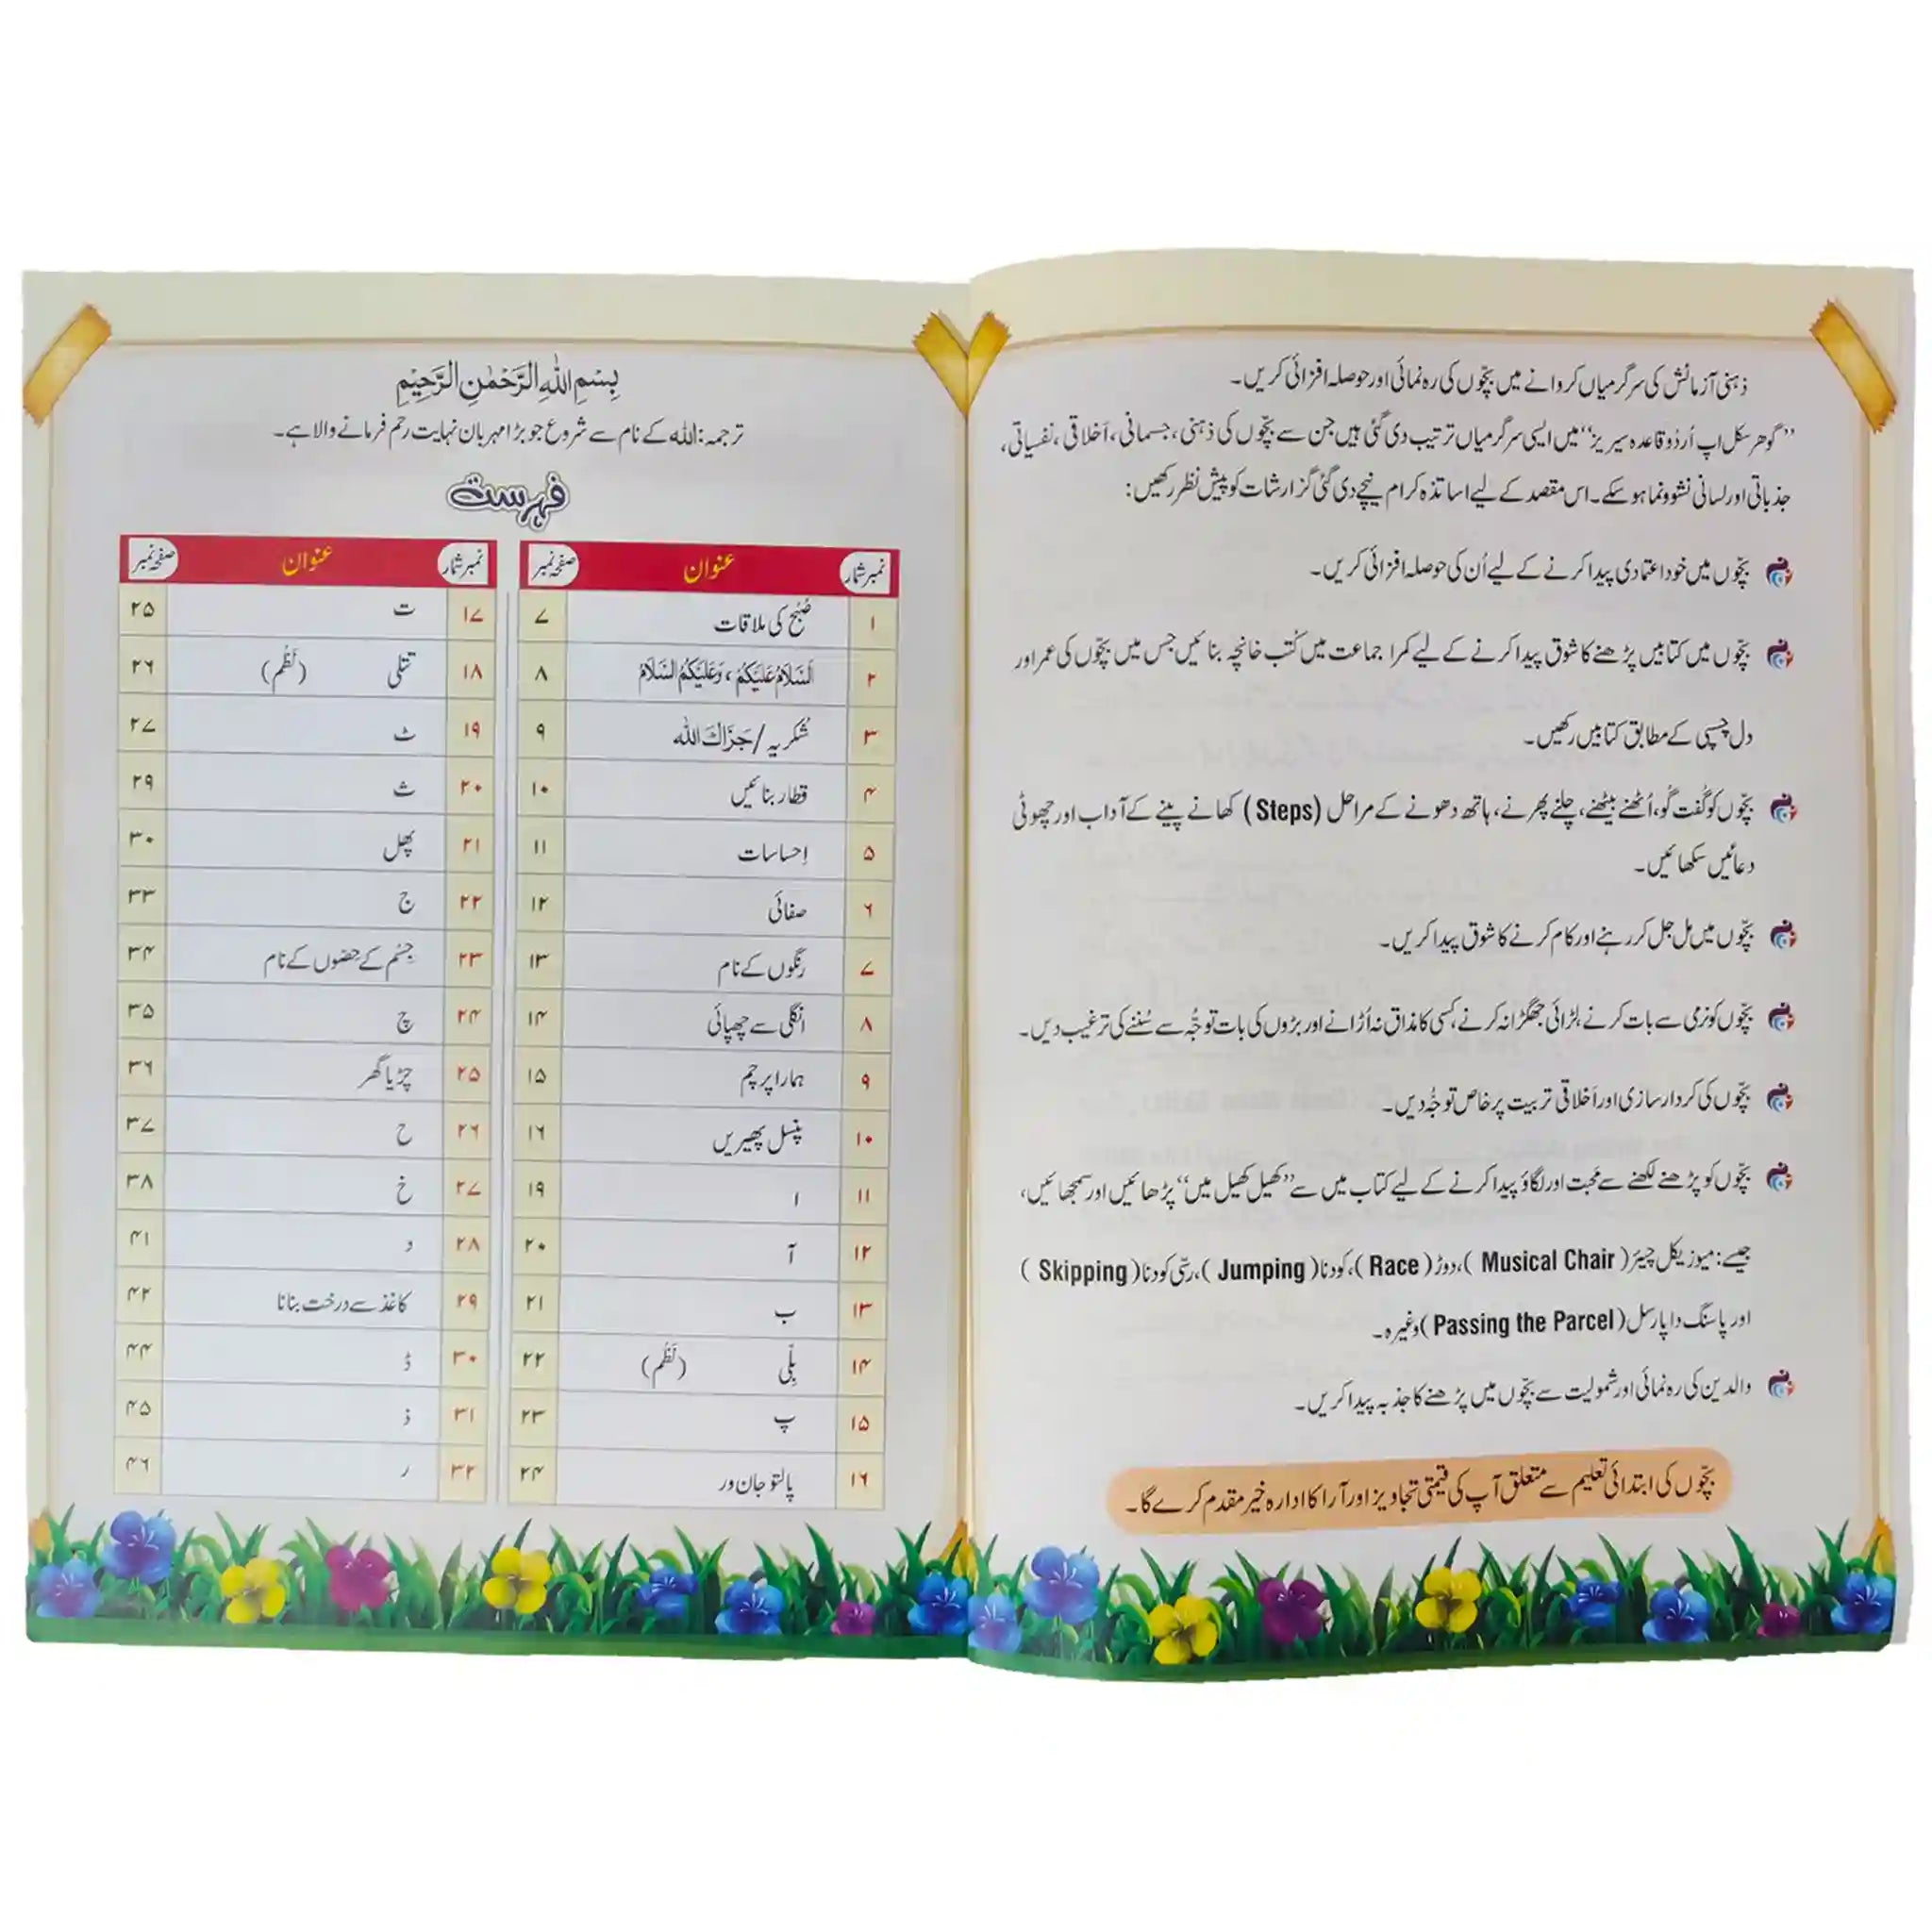 ذہنی آزمائش کی سرگرمیاں کروانے میں بچّوں کی رہ نمائی اور حوصلہ افزائی کریں۔
”گوھر سکل اپ اُردُو قاعدہ سیریز“ میں ایسی سرگرمیاں ترتیب دی گئی ہیں جن سے بچّوں کی ذہنی، جسمانی، اَخلاقی، نفسیاتی،
جذباتی اور لسانی نشوونما ہو سکے۔ اس مقصد کے لیے اساتذہ کرام نیچے دی گئی گزارشات کو پیشِ نظر رکھیں:
بچّوں میں خود اعتمادی پیدا کرنے کے لیے اُن کی حوصلہ افزائی کریں۔
بچّوں میں کتابیں پڑھنے کا شوق پیدا کرنے کے لیے کمرا جماعت میں کُتب خانچہ بنائیں جس میں بچّوں کی عمر اور
دل چسپی کے مطابق کتابیں رکھیں۔
بچّوں کو گُفت گُو، اُٹھنے بیٹھنے، چلنے پھرنے، ہاتھ دھونے کے مراحل (Steps) کھانے پینے کے آداب اور چھوٹی
دعائیں سکھائیں۔
بچّوں میں مل جل کر رہنے اور کام کرنے کا شوق پیدا کریں۔
بچّوں کو نرمی سے بات کرنے، لڑائی جھگڑا نہ کرنے، کسی کا مذاق نہ اُڑانے اور بڑوں کی بات توجُّہ سے سُننے کی ترغیب دیں۔
بچّوں کی کردار سازی اور اَخلاقی تربیت پر خاص توجُّہ دیں۔
بچّوں کو پڑھنے لکھنے سے محبت اور لگاؤ پیدا کرنے کے لیے کتاب میں سے ”کھیل کھیل میں“ پڑھائیں اور سمجھائیں،
جیسے: میوزیکل چیئر (Musical Chair)، دوڑ (Race)، کودنا (Jumping)، رسّی کودنا (Skipping)
اور پاسنگ دا پارسل (Passing the Parcel) وغیرہ۔
والدین کی رہ نمائی اور شمولیت سے بچّوں میں پڑھنے کا جذبہ پیدا کریں۔
بچّوں کی ابتدائی تعلیم سے متعلق آپ کی قیمتی تجاویز اور آرا کا ادارہ خیر مقدم کرے گا۔
بِسْمِ اللّٰهِ الرَّحْمٰنِ الرَّحِيْمِ
ترجمہ: اللّٰہ کے نام سے شروع جو بڑا مہربان نہایت رحم فرمانے والا ہے۔
فہرست
نمبر شمار عنوان صفحہ نمبر
۱ صُبْح کی ملاقات ۷
۲ اَلسَّلَامُ عَلَيْكُمْ ، وَعَلَيْكُمُ السَّلَامُ ۸
۳ شکریہ/جَزَاكَ اللّٰه ۹
۴ قطار بنائیں ۱۰
۵ اِحساسات ۱۱
۶ صفائی ۱۲
۷ رنگوں کے نام ۱۳
۸ انگلی سے چھپائی ۱۴
۹ ہمارا پرچم ۱۵
۱۰ پنسل پھیریں ۱۶
۱۱ ا ۱۹
۱۲ آ ۲۰
۱۳ ب ۲۱
۱۴ بِلّی (نَظْم) ۲۲
۱۵ پ ۲۳
۱۶ پالتو جان ور ۲۴
نمبر شمار عنوان صفحہ نمبر
۱۷ ت ۲۵
۱۸ تتلی (نَظْم) ۲۶
۱۹ ٹ ۲۷
۲۰ ث ۲۹
۲۱ پھل ۳۰
۲۲ ج ۳۳
۲۳ جِسْم کے حِصّوں کے نام ۳۴
۲۴ چ ۳۵
۲۵ چِڑیا گھر ۳۶
۲۶ ح ۳۷
۲۷ خ ۳۸
۲۸ د ۴۱
۲۹ کاغذ سے درخت بنانا ۴۲
۳۰ ڈ ۴۴
۳۱ ذ ۴۵
۳۲ ر ۴۶